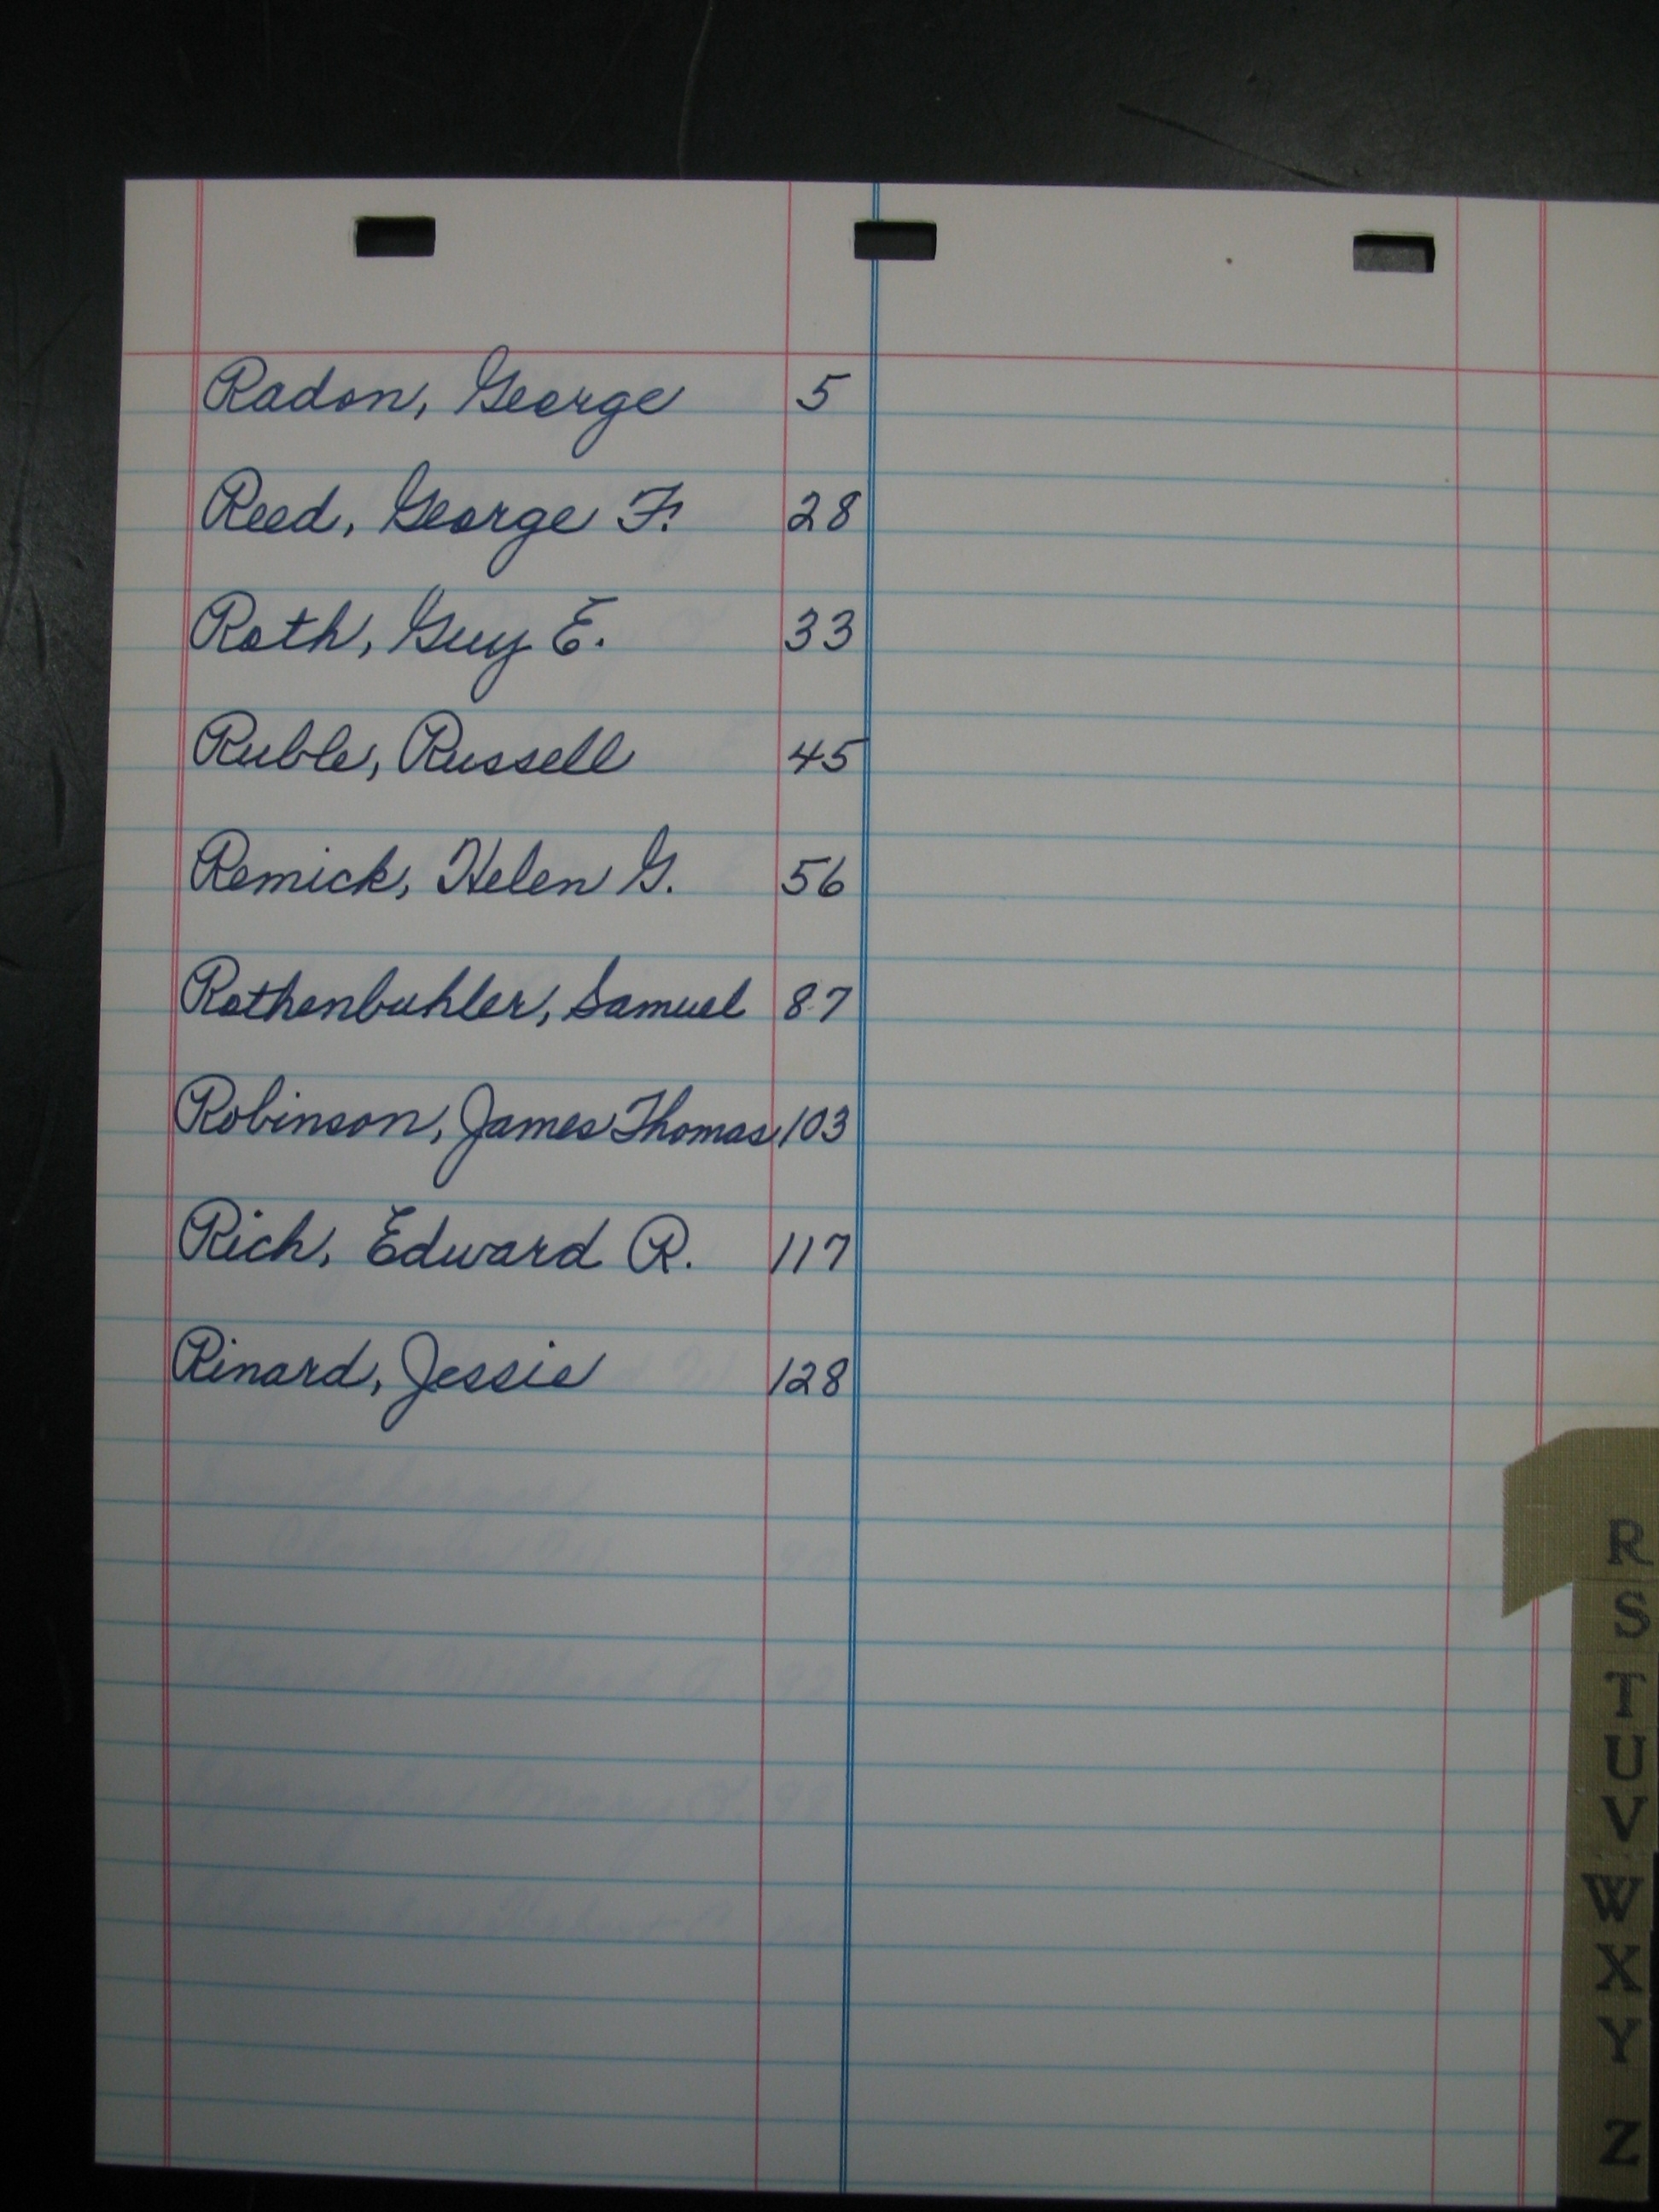 Radon, George 5
Reed, George F. 28
Roth, Guy E. 33
Ruble, Russell 45
Remick, Helen G. 56
Rothenbuhler, Samuel 87
Robinson, James Thomas 103
Rich, Edward R. 117
Rinard, Jessie 128
R
S
T
U
V
W
X
Y
Z